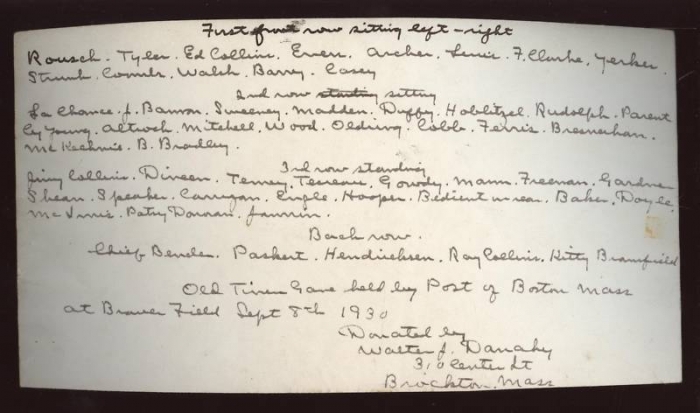 First front row sitting left-right
Rousch. Tyler. Ed Collins. Evers. Archer. Lewis. F. Clarke, Yerkes.
Strunk. Combs. Walsh. Barry. Casey
2nd row standing sitting
La Chance. J. Bannon. Sweeney. Madden. Duffy. Hoblitzel. Rudolph. Parent
Cy Young. Altrock. Mitchell. Wood. Olding. Cobb. Ferris. Bresnahan.
McKechnie. B. Bradley.
3rd row standing
Jimy Collins. Dineen. Tenney. Tesreau. Gowdy. Mann. Freeman. Gardner
Shean. Speaker. Carrigan. Engle. Hooper. Bedient in rear. Baker. Doyle.
McInnis. Patsy Donovan.
Back row.
Chief Bender. Paskert. Hendricksen. Ray Collins. Kitty Bransfield
Old Timers Game held by Post of Boston Mass
at Braves Field Sept 8th 1930
Donated by
Walter J. Danahy
310 Center St
Brockton. Mass